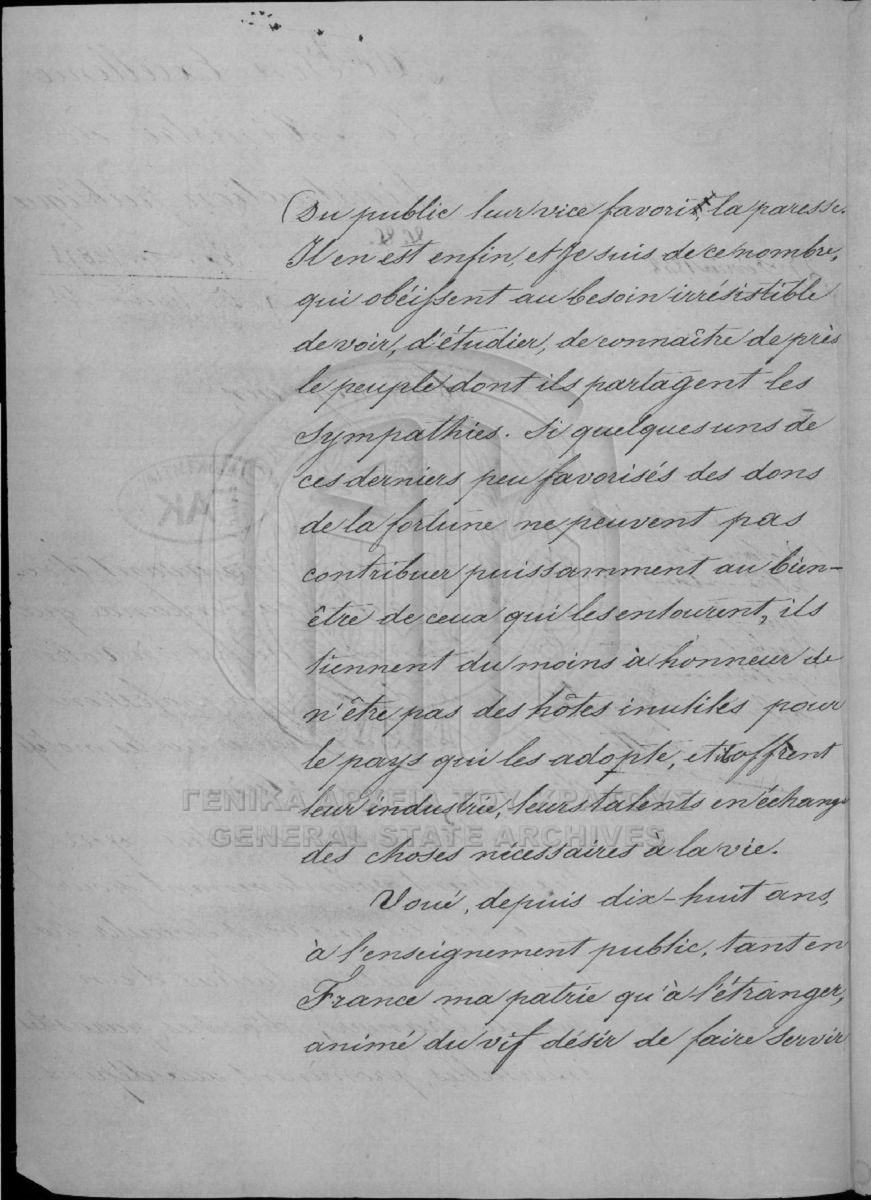 du public leur vice favori, la paresse.
Il en est enfin, et je suis de ce nombre,
qui obéissent au besoin irrésistible
de voir, d'étudier, de connaître de près
le peuple dont ils partagent les
sympathies. Si quelques uns de
ces derniers peu favorisés des dons
de la fortune ne peuvent pas
contribuer puissamment au bien-
être de ceux qui les entourent, ils
tiennent du moins à honneur de
n'être pas des hôtes inutiles pour
le pays qui les adopte, et offrent
leur industrie, leurs talents en échange
ΓΕΝΙΚΑ ΑΡΧΕΙΑ ΤΟΥ ΚΡΑΤΟΥΣ
GENERAL STATE ARCHIVES
des choses nécessaires à la vie.
Voué, depuis dix-huit ans,
à l'enseignement public, tant en
France ma patrie qu'à l'étranger,
animé du vif désir de faire servir